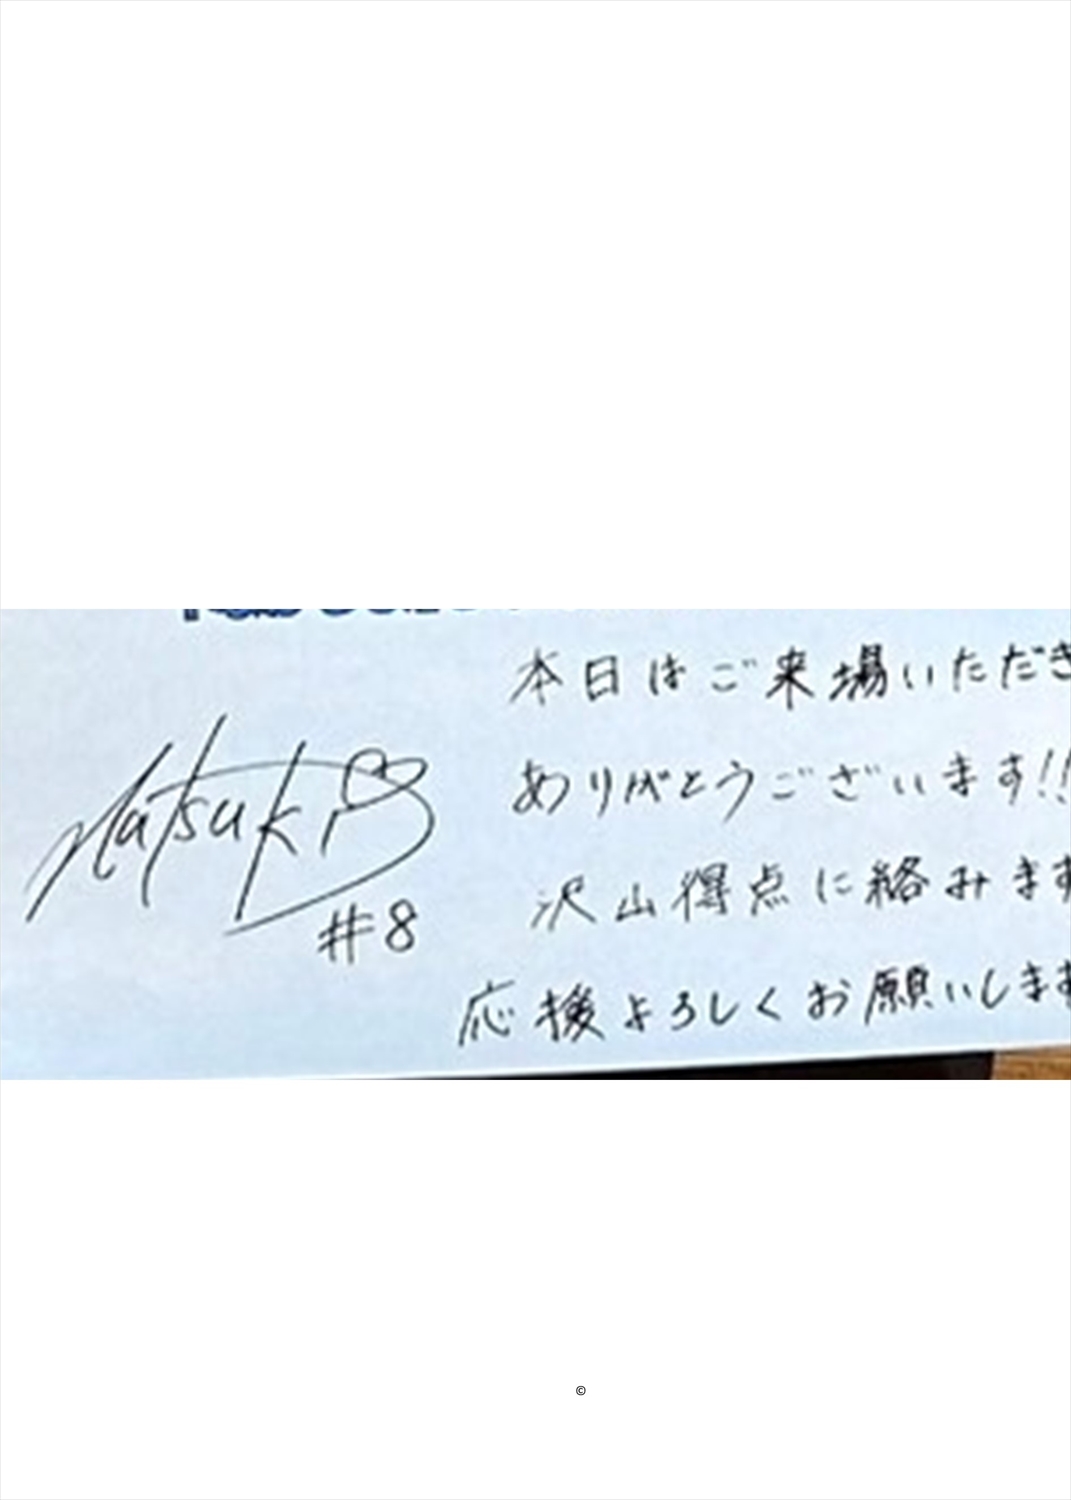 本日はご来場いただき
ありがとうございます!!
沢山得点に絡みます
応援よろしくお願いします
Natsuki
#8
©